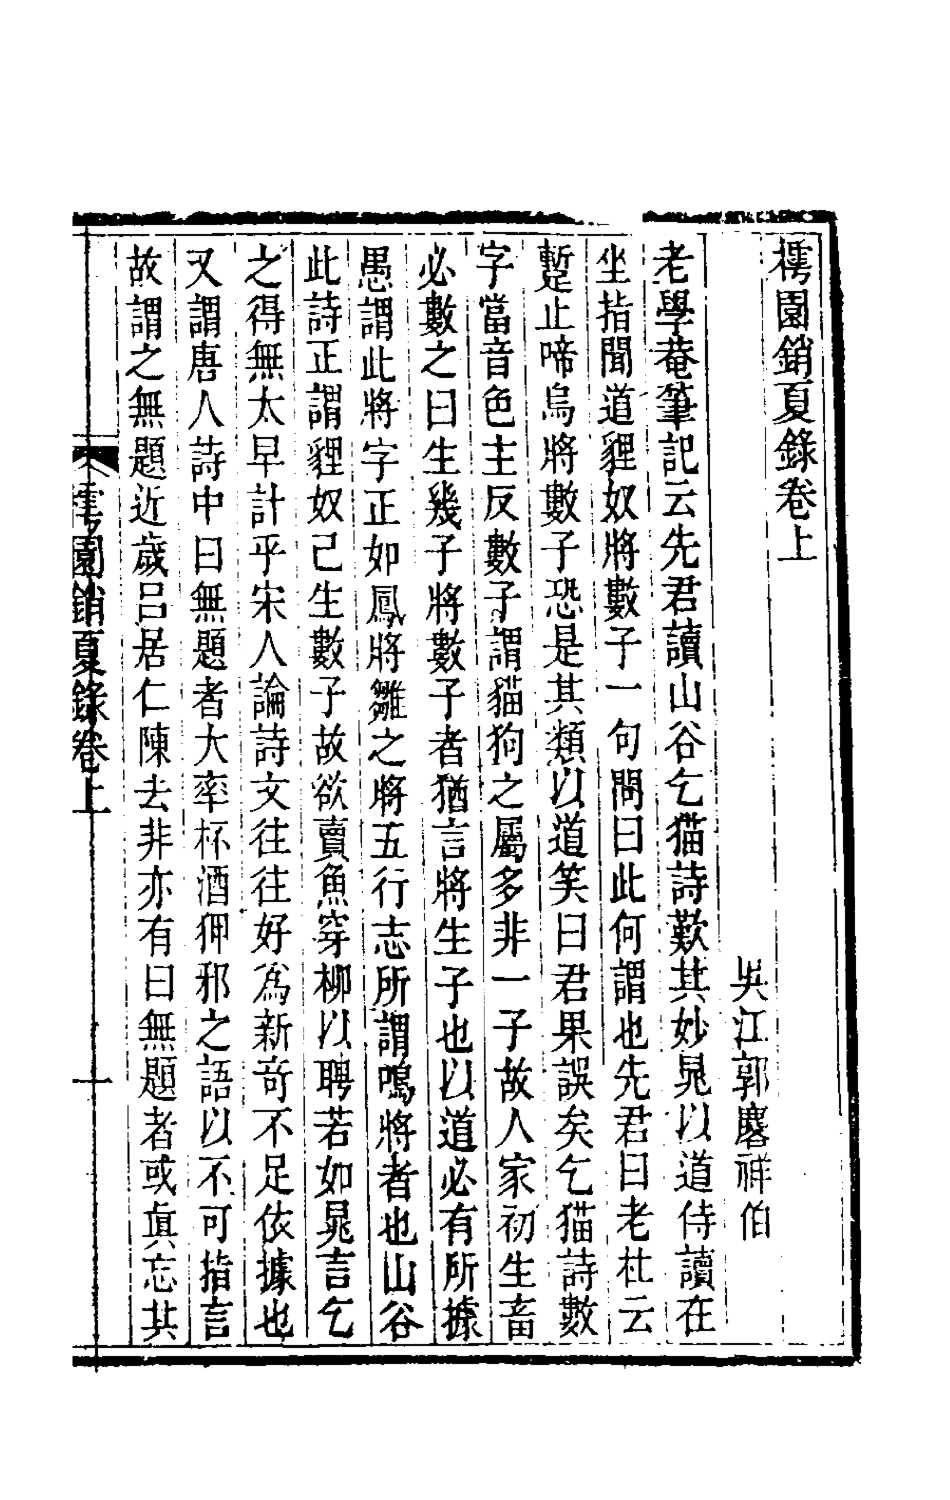 樗園銷夏錄卷上
吳江郭麐祥伯
老學菴筆記云先君讀山谷乞猫詩歎其妙晁以道侍讀在
坐指聞道貍奴將數子一句問曰此何謂也先君曰老杜云
蹔止啼烏將數子恐是其類以道笑曰君果誤矣乞猫詩數
字當音色主反數子謂貓狗之屬多非一子故人家初生畜
必數之曰生幾子將數子者猶言將生子也以道必有所據
愚謂此將字正如鳳將雛之將五行志所謂鳴將者也山谷
此詩正謂貍奴己生數子故欲賣魚穿柳以聘若如晁言乞
之得無太早計乎宋人論詩文往往好為新奇不足依據也
又謂唐人詩中曰無題者大率杯酒狎邪之語以不可指言
故謂之無題近歲呂居仁陳去非亦有曰無題者或真忘其
樗園銷夏錄卷上
一